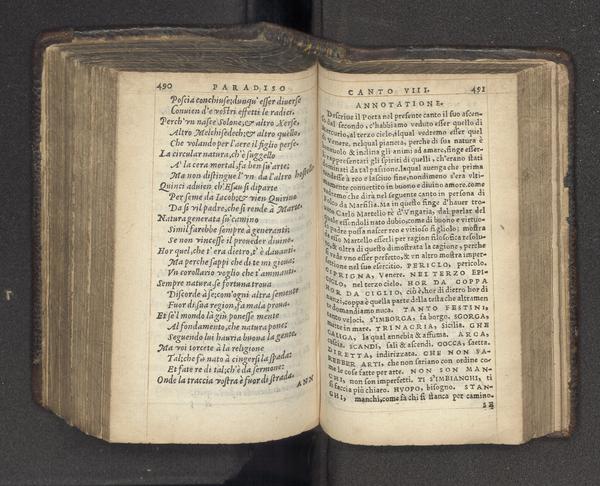 490 PARADISO
Poscia conchiuse; dunqu' esser diuerse
Conuien d'e vostri effetti le radici.
Perch' vn nasce Solone, & altro Xerse,
Altro Melchisedech; & altro quello,
Che volando per l'aere il figlio perse.
La circular natura, ch'è suggello
A' la cera mortal, fa ben su' arte;
Ma non distingue l'vn da l'altro hostello.
Quinci aduien, ch'Esau si diparte
Per seme da Iacob; & vien Quirino
Da sì vil padre, che si rende à Marte.
Natura generata su' camino
Simil farebbe sempre à generanti;
Se non vincesse il proueder diuino.
Hor quel, che t'era dietro, t'è dauanti.
Ma perche sappi che di te mi gioua;
Vn corollario voglio che t'ammanti.
Sempre natura, se fortuna troua
Discorde à se; com'ogni altra semente
Fuor di sua region, fa mala proua.
Et se'l mondo là giù ponesse mente
Al fondamento, che natura pone;
Seguendo lui hauria buona la gente.
Ma voi torcete à la religione
Tal, che fù nato à cingersi la spada;
Et fate re di tal, ch'è da sermone:
Onde la traccia vostra è fuor di strada.
ANN
CANTO VIII. 491
ANNOTATIONE.
Descriue il Poeta nel presente canto il suo ascen-
so dal secondo, c'habbiamo veduto esser quello di
Mercurio, al terzo cielo, il qual vedremo esser quel
di Venere, nelqual pianeta, perche di sua natura è
& inclina gli animi ad amare, finge esser-
si rappresentati gli spiriti di quelli, ch'erano stati
dominati da tal passione, laqual auenga che prima
tendesse à reo e lasciuo fine, nondimeno s'era vlti-
mamente conuertito in buono e diuino amore, come
vedremo che dirà nel seguente canto in persona di
Folco da Marsilia. Ma in questo finge d'hauer tro-
uato Carlo Martello rè d'Vngaria, dal parlar del
quale essendoli nato dubio, come di buono e virtuo-
so padre possa nascer reo e vitioso figliolo; mostra
da esso Martello esserli per ragion filosofica resolu-
to, & oltra di questo dimostrata la cagione, perche
si vede vno esser perfetto, & vn altro mostra imper-
fettione nel suo esercitio. PERICLO, pericolo.
CIPRIGNA, Venere. NEL TERZO EPI-
CICLO, nel terzo cielo. HOR DA COPPA
HOR DA CIGLIO, ciò è, hor di dietro hor di
nanzi, coppa è quella parte della testa che altramen
te domandiamo nuca. TANTO FESTINI,
tanto veloci. S'IMBORGA, fa borgo. SGORGA,
mette in mare. TRINACRIA, Sicilia. CHE
CALIGA, la qual annebia & affuma. ARCA,
cassia. SCANDI, sali & ascendi. COCCA, saetta.
DIRETTA, indirizzata. CHE NON FA-
REBBER ARTI, che non seriano con ordine co-
me le cose fatte per arte. NON SON MAN-
CHI, non son imperfetti. TI S'IMBIANCHI, ti
si faccia più chiaro. HVOPO, bisogno. STAN-
CHI, manchi, come fà chi si stanca per camino.